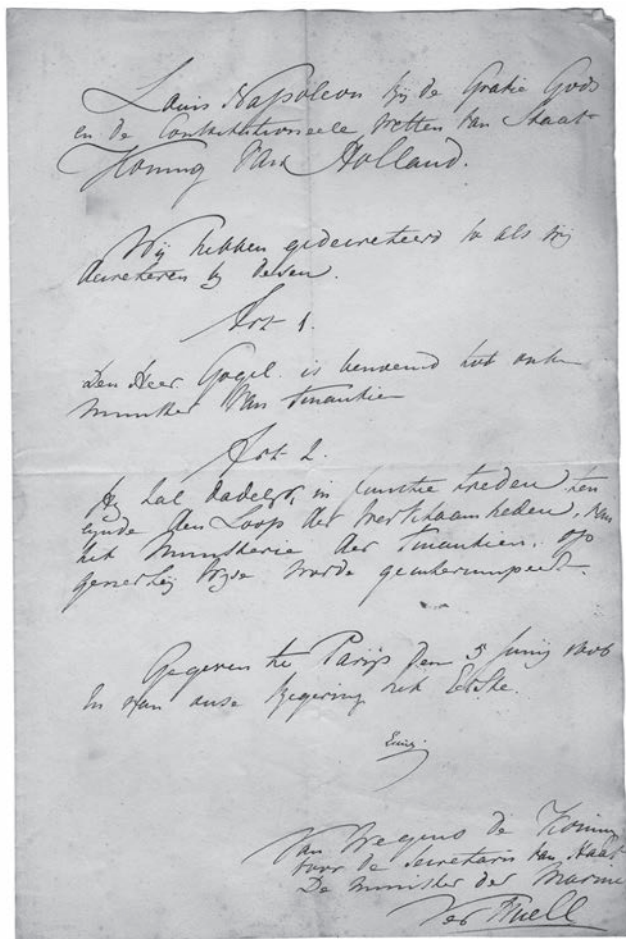 Louis Napoleon bij de Gratie Gods
en de Constitutioneele Wetten van Staat
Koning van Holland.
Wij hebben gedecreteerd zo als wij
decreteren bij desen.
Art 1.
Den Heer Gogel is benoemd tot onse
Minister van Finantien
Art 2.
Hij zal dadelijk in functie treden ten
eynde den Loop der Werkzaamheden van
het Ministerie der Finantien op
generleij wyse worde geinterrumpeert.
Gegeven te Parijs den 5 Junij 1806
In van onse Regering het Eerste.
Van Wegens de Koning
voor de Secretaris van Staat
De Minister der Marine
Ver Huell